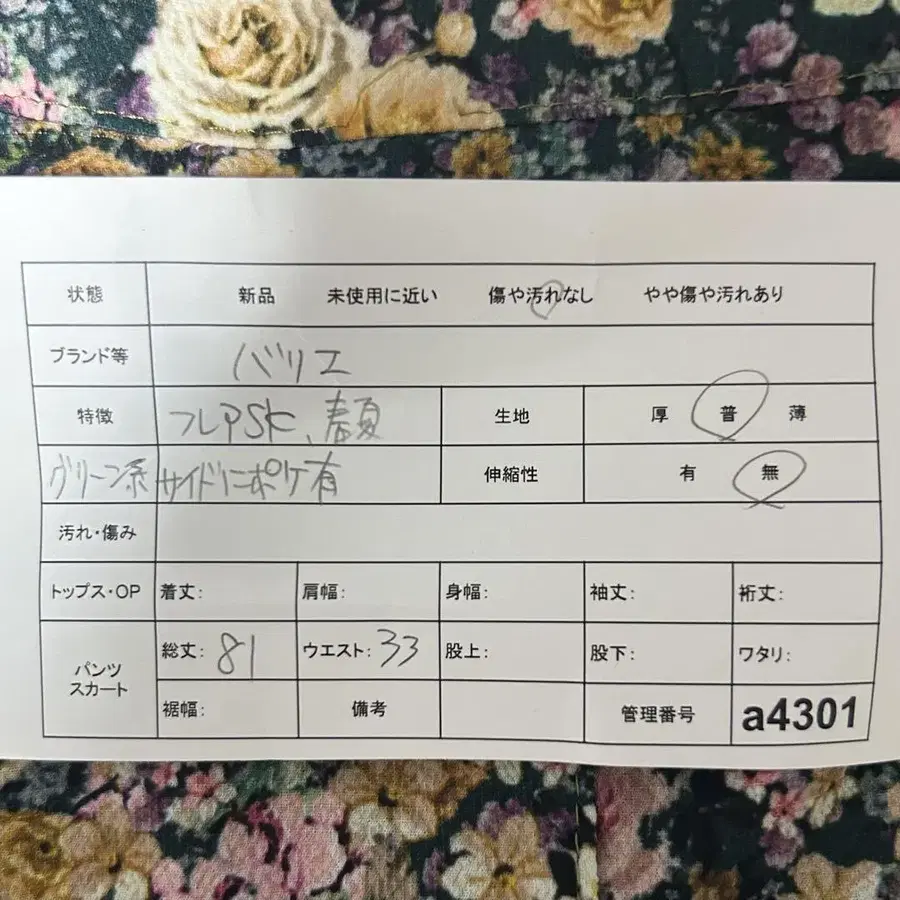 状態 新品 未使用に近い 傷や汚れなし やや傷や汚れあり
ブランド等 バリエ
特徴 フレアSK、春夏 生地 厚 普 薄
グリーン系 サイドにポケ有 伸縮性 有 無
汚れ・傷み
トップス・OP 着丈: 肩幅: 身幅: 袖丈: 裄丈:
パンツ スカート 総丈: 81 ウエスト: 33 股上: 股下: ワタリ:
裾幅: 備考 管理番号 a4301